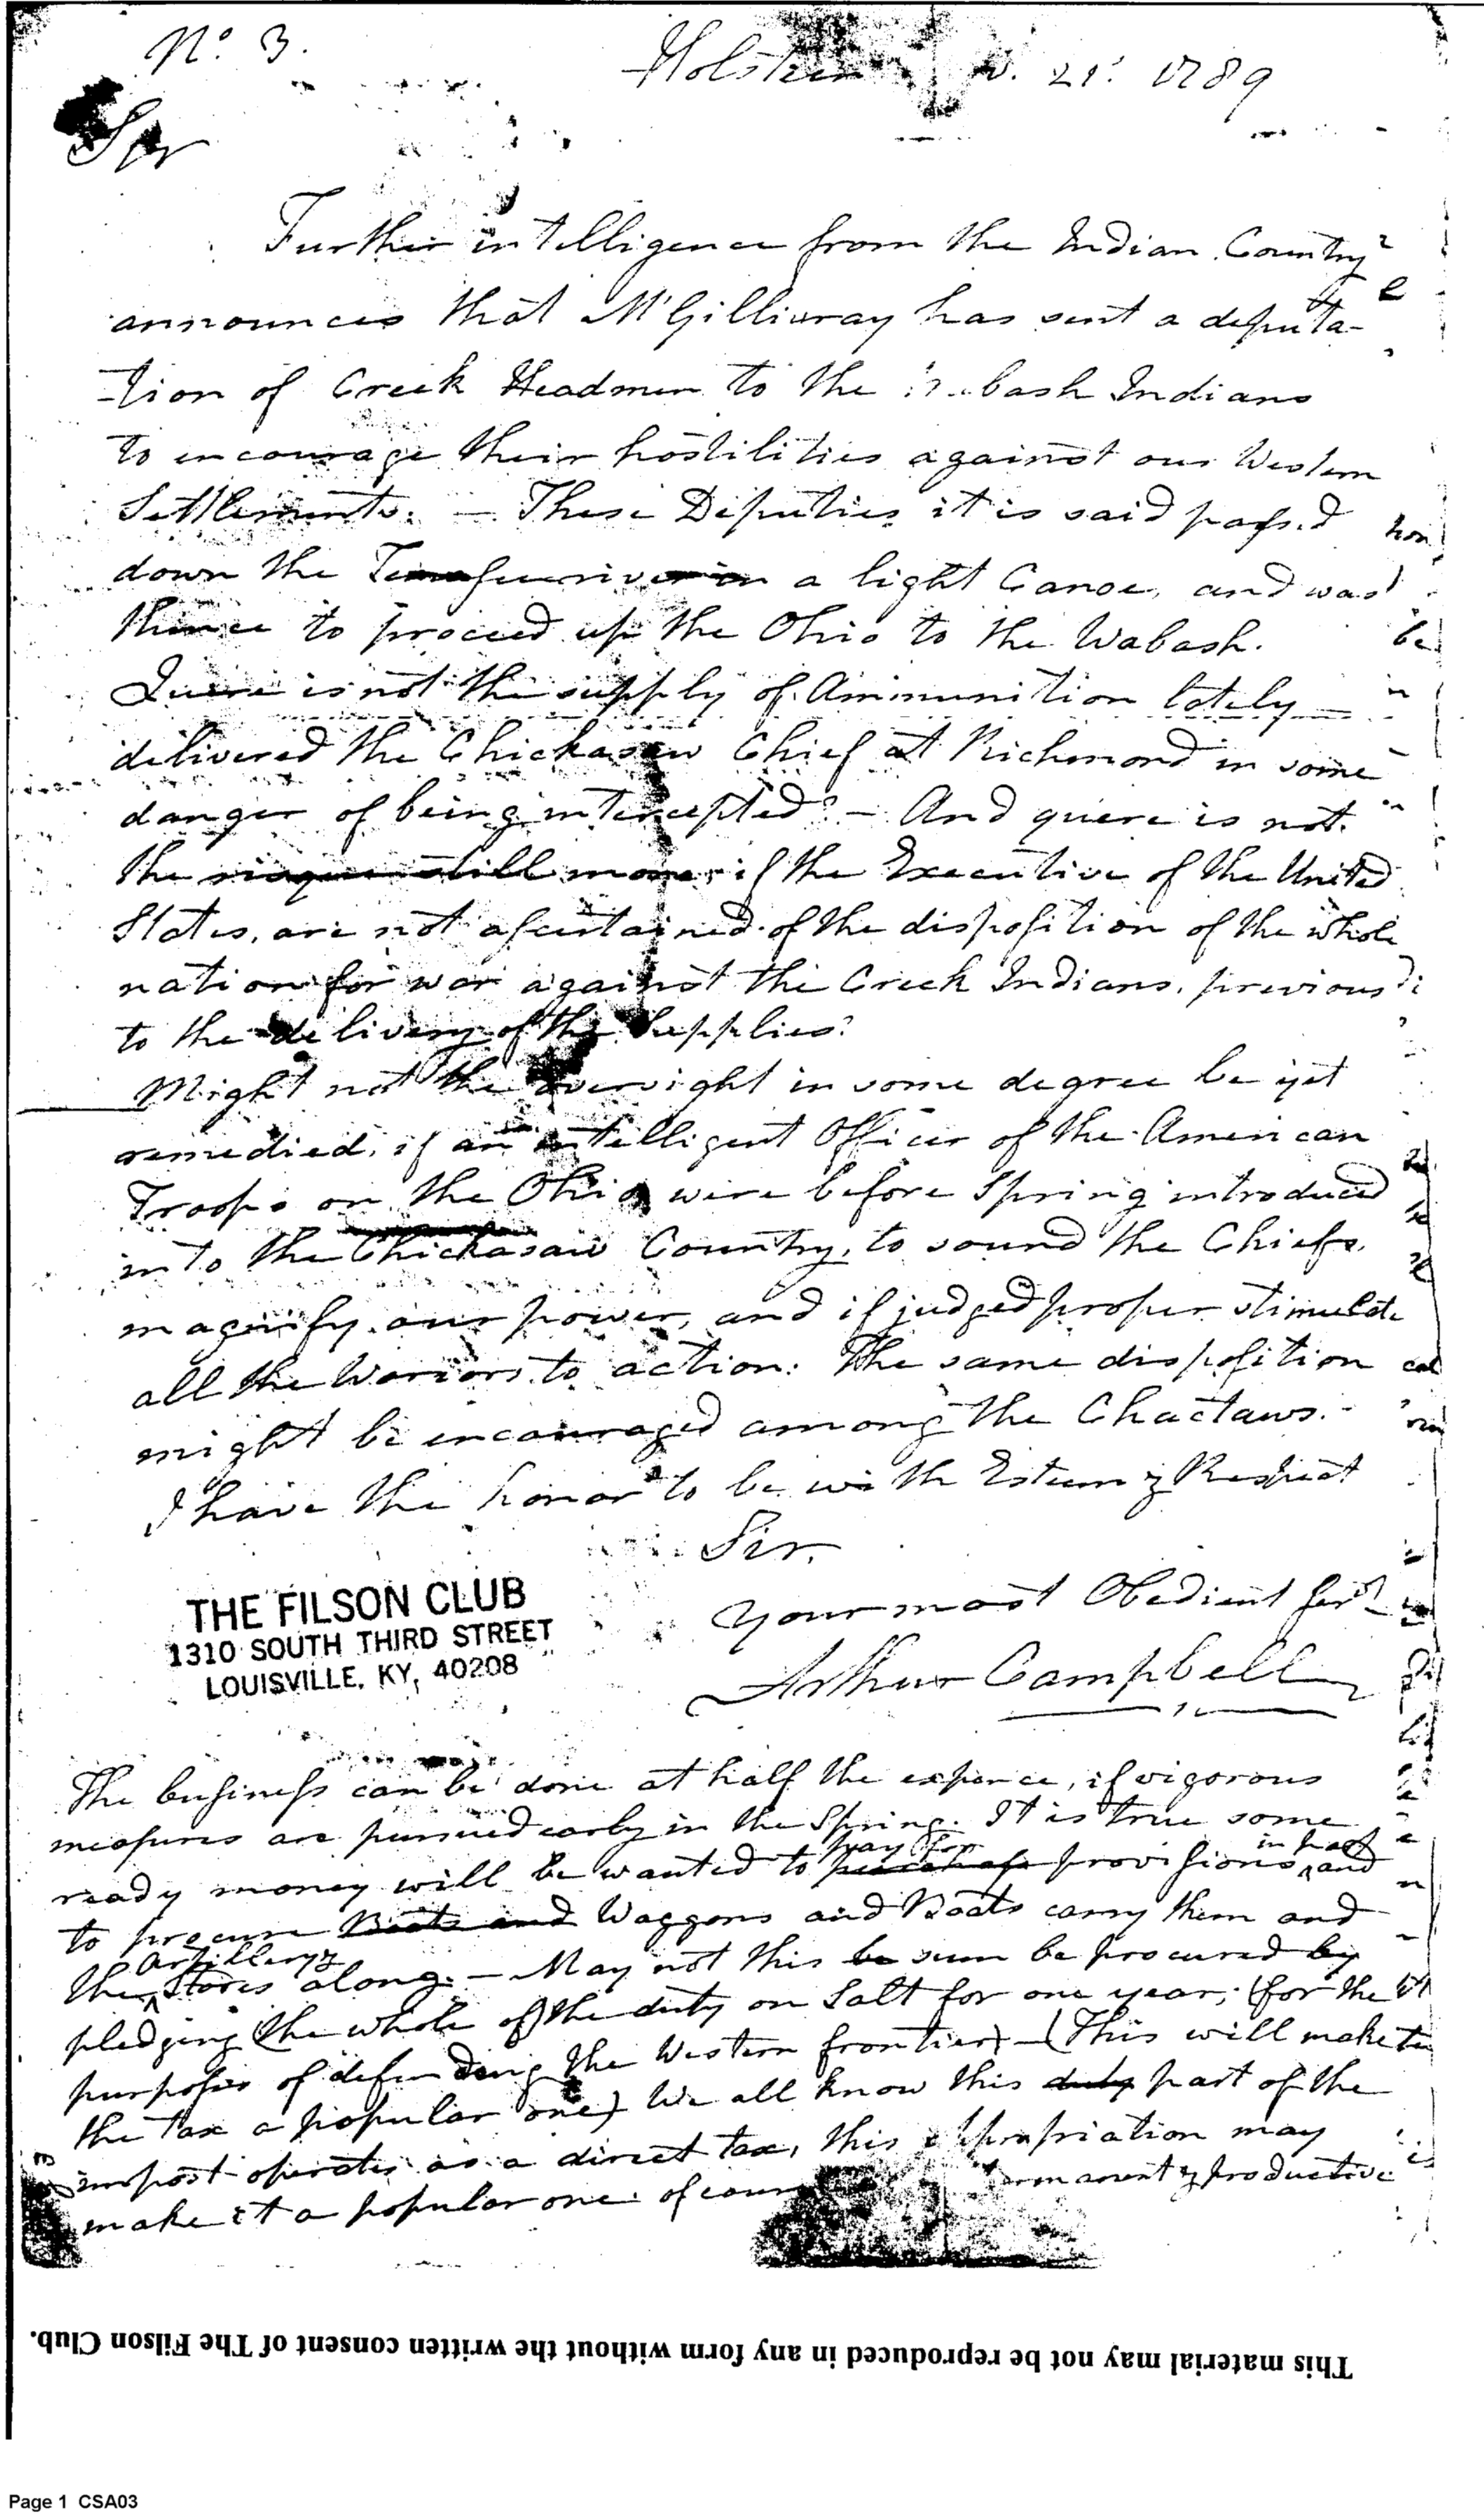 No. 3.
Holstein 21. 1789
Sir
Further intelligence from the Indian Country
announces that McGillivray has sent a deputa-
-tion of Creek Headmen to the bash Indians
to encourage their hostilities against our Western
Settlements. — These Deputies it is said passed
down the Tennessee river in a light Canoe, and was
thence to proceed up the Ohio to the Wabash.
Quere is not the supply of Ammunition lately
delivered the Chickasaw Chief at Richmond in some
danger of being intercepted? — And quere is not
the risque still more, if the Executive of the United
States, are not ascertained of the disposition of the whole
nation for war against the Creek Indians, previous
to the delivery of the Supplies?
Might not the oversight in some degree be yet
remedied, if an intelligent Officer of the American
Troops on the Ohio were before Spring introduced
into the Chickasaw Country, to sound the Chiefs,
magnify our power, and if judged proper stimulate
all the Wariors to action: The same disposition
might be encouraged among the Chactaws. -
I have the honor to be with Esteem & Respect
Sir.
Your most Obedient Servt
Arthur Campbell
THE FILSON CLUB
1310 SOUTH THIRD STREET
LOUISVILLE, KY, 40208
The business can be done at half the expence, if vigorous
measures are pursued early in the Spring. It is true some
ready money will be wanted to purchase pay for provisions in part and
to procure Boats and Waggons and Boats carry them and
the Artillery & Stores along. — May not this be sum be procured by
pledging (the whole of) the duty on Salt for one year, (for the
purposes of defending the Western frontier) — (This will make
the tax a popular one) We all know this duty part of the
impost operates as a direct tax, this appropriation may
make it a popular one: of cour permanent & productive
This material may not be reproduced in any form without the written consent of The Filson Club.
Page 1 CSA03